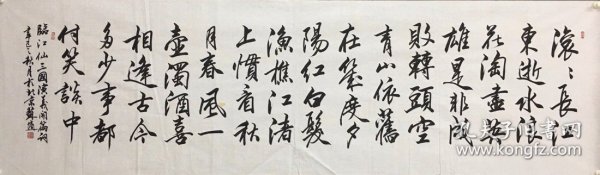 滾〻長江
東逝水浪
花淘盡英
雄是非成
敗轉頭空
青山依舊
在幾度夕
陽紅白髮
漁樵江渚
上慣看秋
月春風一
壺濁酒喜
相逢古今
多少事都
付笑談中
臨江仙三國演義開篇詞
秋月於北京蘇
孔夫子旧书网
www.kongfz.com